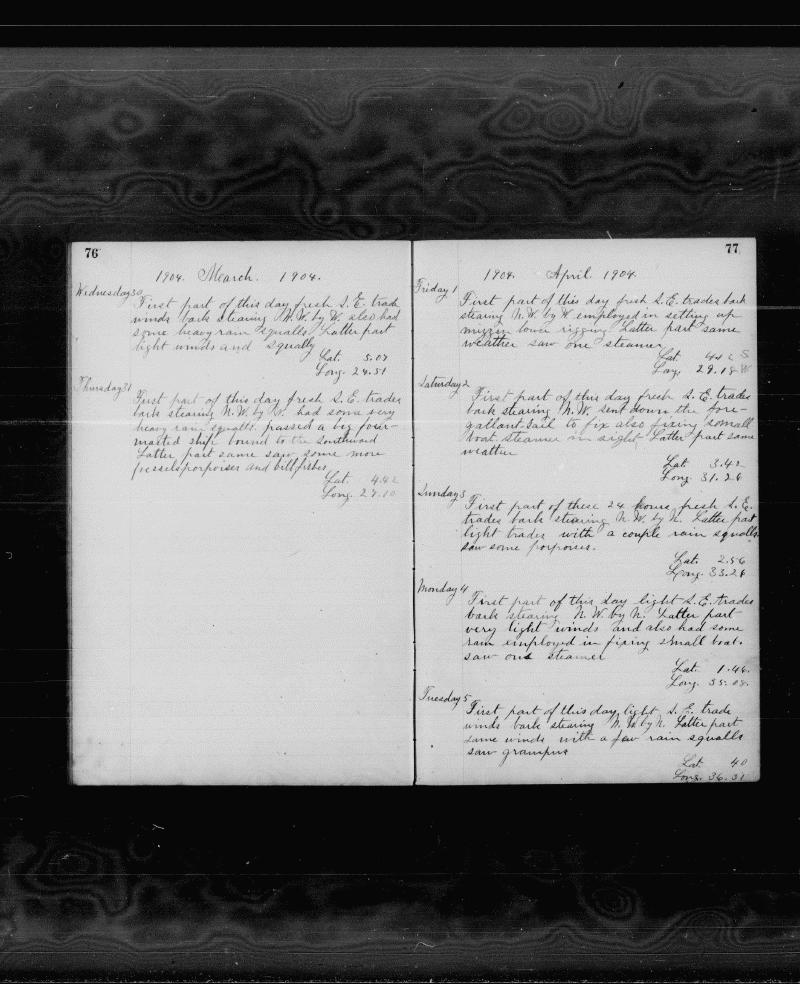 76
1904. March. 1904.
Wednesday 30
First part of this day fresh S.E. trade
winds bark stearing N.W. by W. also had
some heavy rain squalls. Latter part
light winds and squally
Lat. 5.07
Long. 24.51
Thursday 31
First part of this day fresh S.E. trades
bark stearing N.W. by W. had some very
heavy rain squalls. passed a big four-
masted ship bound to the Southward
Latter part same saw some more
porpoises and billfishes
Lat. 4.42
Long. 27.10
77
1904. April. 1904.
Friday 1
First part of this day fresh S.E. trades bark
stearing N.W. by W employed in setting up
mizzin lower rigging Latter part same
weather saw one steamer
Lat. S
Long. 29.18 W
Saturday 2
First part of this day fresh S.E. trades
bark stearing N.W. sent down the fore-
gallant sail to fix also fixing small
boat. steamer in sight Latter part same
weather
Lat. 3.42
Long. 31.26
Sunday 3
First part of these 24 hours fresh S.E.
trades bark stearing N.W. by N. Latter part
light trades with a couple rain squalls
saw some porpoises.
Lat. 2.56
Long. 33.26
Monday 4
First part of this day light S.E. trades
bark stearing N.W. by N. Latter part
very light winds and also had some
rain employed in fixing small boat.
saw one steamer
Lat. 1.46.
Long. 35.08.
Tuesday 5
First part of this day light S.E. trade
winds bark stearing N.W. by N. Latter part
same winds with a few rain squalls
saw grampus
Lat. 40
Long. 36.31